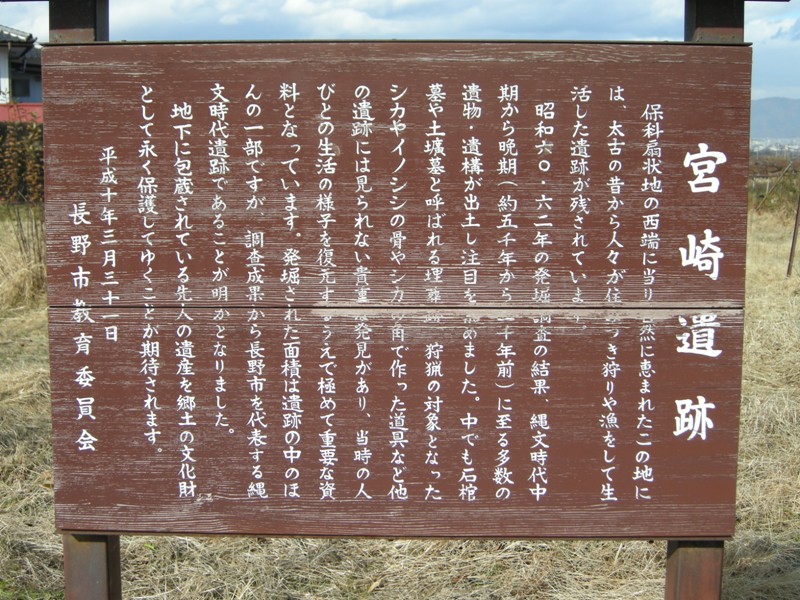 宮崎遺跡
保科扇状地の西端に当り自然に恵まれたこの地に
は、太古の昔から人々が住みつき狩りや漁をして生
活した遺跡が残されています。
昭和六〇・六二年の発掘調査の結果、縄文時代中
期から晩期（約五千年から二千年前）に至る多数の
遺物・遺構が出土し注目を集めました。中でも石棺
墓や土壙墓と呼ばれる埋葬跡、狩猟の対象となった
シカやイノシシの骨やシカの角で作った道具など他
の遺跡には見られない貴重な発見があり、当時の人
びとの生活の様子を復元するうえで極めて重要な資
料となっています。発掘された面積は遺跡の中のほ
んの一部ですが、調査成果から長野市を代表する縄
文時代遺跡であることが明かとなりました。
地下に包蔵されている先人の遺産を郷土の文化財
として永く保護してゆくことが期待されます。
平成十年三月三十一日
長野市教育委員会